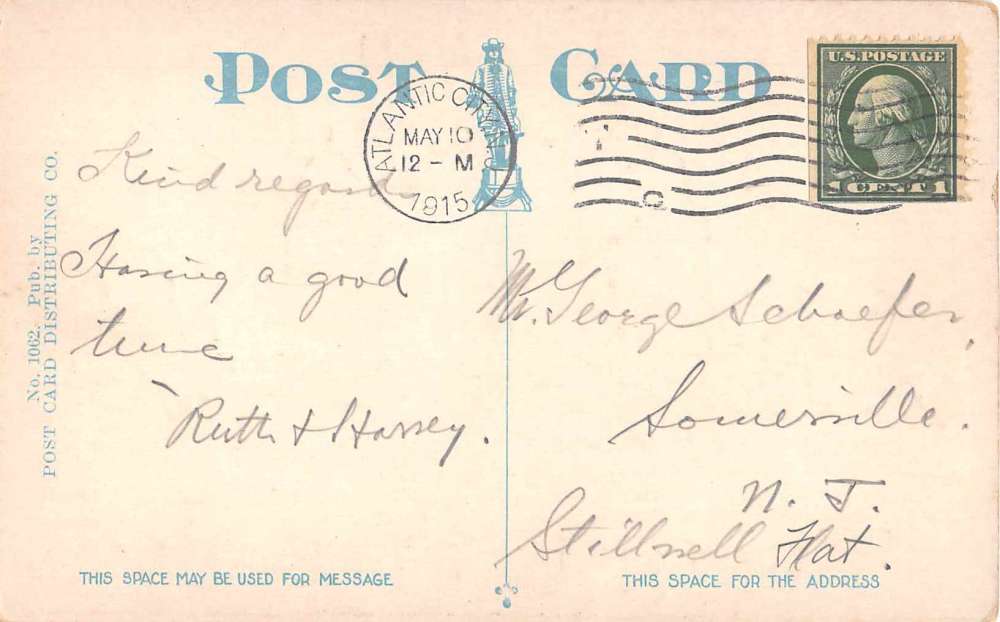 POST CARD
U.S. POSTAGE
1 CENT 1
ATLANTIC CITY, N.J.
MAY 10
12 - M
1915
No. 1062. Pub. by
POST CARD DISTRIBUTING CO.
Kind regards
Having a good
time
Ruth & Harvey.
Mr. George Schaefer,
Somerville.
N. J.
Stillwell Flat.
THIS SPACE MAY BE USED FOR MESSAGE
THIS SPACE FOR THE ADDRESS